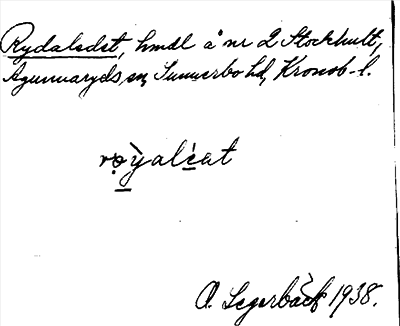 Rydalsdet, hmdl å nr 2 Stockhult,
Agunnaryds sn, Sunnerbo hd, Kronob. l.
rọỳalèat
O. Segerbäck 1938.